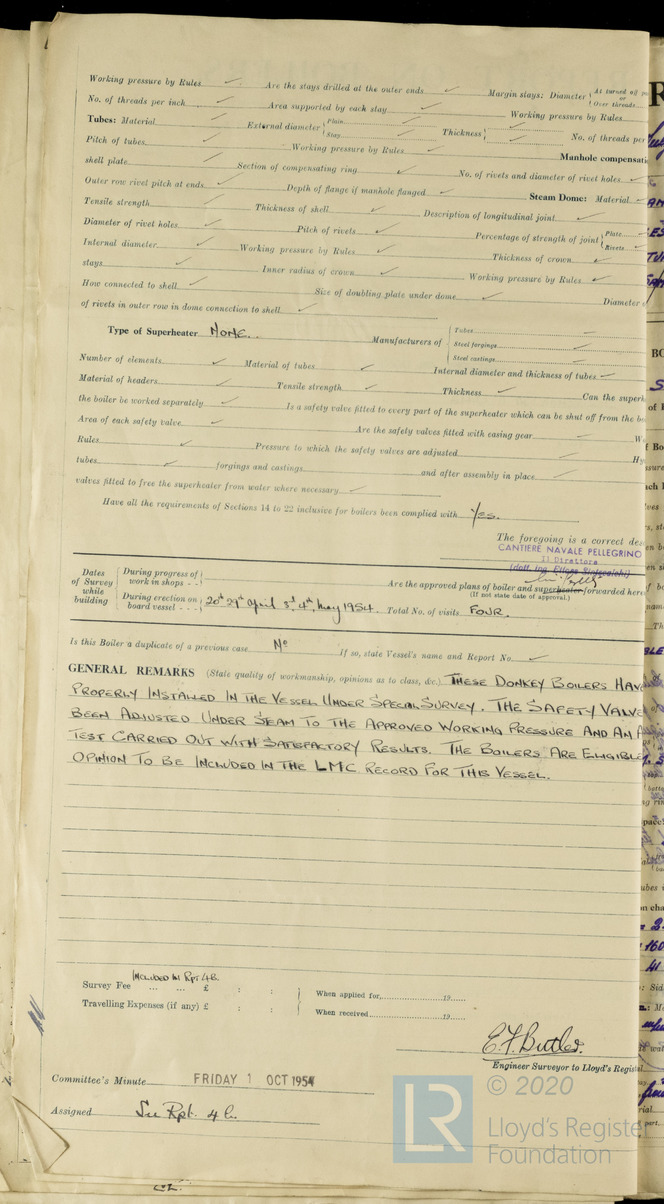 Working pressure by Rules ✓ Are the stays drilled at the outer ends ✓ Margin stays: Diameter { At turned off or Over threads
No. of threads per inch ✓ Area supported by each stay ✓ Working pressure by Rules
Tubes: Material ✓ External diameter { Plain ✓ Stay ✓ Thickness { ✓ No. of threads per
Pitch of tubes ✓ Working pressure by Rules ✓ Manhole compensati
shell plate ✓ Section of compensating ring ✓ No. of rivets and diameter of rivet holes ✓
Outer row rivet pitch at ends ✓ Depth of flange if manhole flanged ✓ Steam Dome: Material ✓
Tensile strength ✓ Thickness of shell ✓ Description of longitudinal joint ✓
Diameter of rivet holes ✓ Pitch of rivets ✓ Percentage of strength of joint { Plate Rivets ✓
Internal diameter ✓ Working pressure by Rules ✓ Thickness of crown ✓
stays ✓ Inner radius of crown ✓ Working pressure by Rules ✓
How connected to shell ✓ Size of doubling plate under dome ✓ Diameter
of rivets in outer row in dome connection to shell
Type of Superheater NONE. Manufacturers of { Tubes Steel forgings Steel castings
Number of elements ✓ Material of tubes ✓ Internal diameter and thickness of tubes ✓
Material of headers ✓ Tensile strength ✓ Thickness ✓ Can the superh
the boiler be worked separately ✓ Is a safety valve fitted to every part of the superheater which can be shut off from the bo
Area of each safety valve ✓ Are the safety valves fitted with easing gear W
Rules ✓ Pressure to which the safety valves are adjusted ✓ Hy
tubes ✓ forgings and castings and after assembly in place
valves fitted to free the superheater from water where necessary ✓
Have all the requirements of Sections 14 to 22 inclusive for boilers been complied with Yes.
The foregoing is a correct des
CANTIERE NAVALE PELLEGRINO
Il Direttore
Dates of Survey while building { During progress of work in shops - - During erection on board vessel - - - 20th 29th April 3rd 4th May 1954. Are the approved plans of boiler and superheater forwarded here
(If not state date of approval.)
Total No. of visits FOUR.
Is this Boiler a duplicate of a previous case No If so, state Vessel's name and Report No. ✓
GENERAL REMARKS (State quality of workmanship, opinions as to class, &c.) THESE DONKEY BOILERS HAVE
PROPERLY INSTALLED IN THE VESSEL UNDER SPECIAL SURVEY. THE SAFETY VALVE
BEEN ADJUSTED UNDER STEAM TO THE APPROVED WORKING PRESSURE AND AN A
TEST CARRIED OUT WITH SATISFACTORY RESULTS. THE BOILERS ARE ELIGIBLE
OPINION TO BE INCLUDED IN THE LMC RECORD FOR THIS VESSEL.
INCLUDED IN RPT 4b.
Survey Fee ... ... £ : : When applied for, 19
Travelling Expenses (if any) £ : : When received 19
E. F. Butler.
Engineer Surveyor to Lloyd's Regist
Committee's Minute FRIDAY 1 OCT 1954
Assigned See Rpt. 4b.
LR © 2020
Lloyd's Registe
Foundation